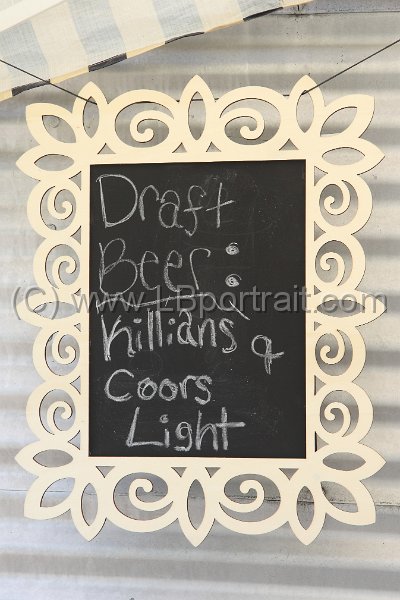 Draft
Beer:
Killians &
Coors
Light
(C) www.LBportrait.com